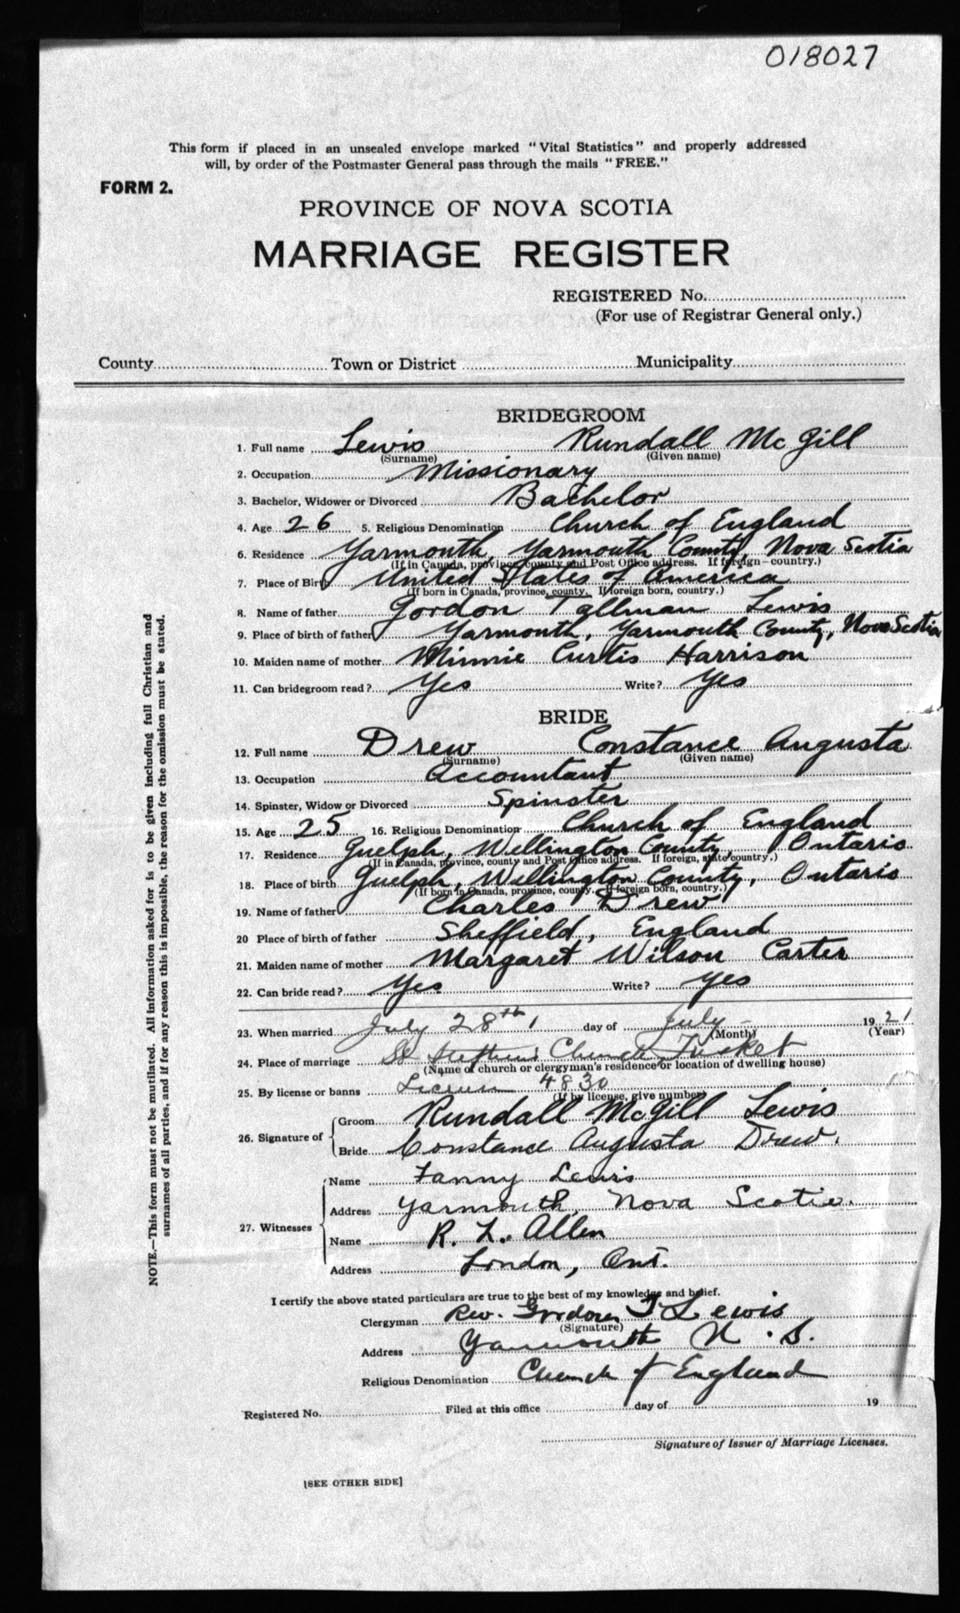 018027
This form if placed in an unsealed envelope marked "Vital Statistics" and properly addressed
will, by order of the Postmaster General pass through the mails "FREE."
FORM 2.
PROVINCE OF NOVA SCOTIA
MARRIAGE REGISTER
REGISTERED No.
(For use of Registrar General only.)
County Town or District Municipality
BRIDEGROOM
1. Full name Lewis Rundall McGill
(Surname) (Given name)
2. Occupation Missionary
3. Bachelor, Widower or Divorced Bachelor
4. Age 26 5. Religious Denomination Church of England
6. Residence Yarmouth, Yarmouth County, Nova Scotia
(If in Canada, province, county and Post Office address. If foreign—country.)
7. Place of Birth United States of America
(If born in Canada, province, county. If foreign born, country.)
8. Name of father Gordon Tallman Lewis
9. Place of birth of father Yarmouth, Yarmouth County, Nova Scotia
10. Maiden name of mother Minnie Curtis Harrison
11. Can bridegroom read? Yes Write? Yes
BRIDE
12. Full name Drew Constance Augusta
(Surname) (Given name)
13. Occupation Accountant
14. Spinster, Widow or Divorced Spinster
15. Age 25 16. Religious Denomination Church of England
17. Residence Guelph, Wellington County, Ontario
(If in Canada, province, county and Post Office address. If foreign, state country.)
18. Place of birth Guelph, Wellington County, Ontario
(If born in Canada, province, county. If foreign born, country.)
19. Name of father Charles Drew
20 Place of birth of father Sheffield, England
21. Maiden name of mother Margaret Wilson Carter
22. Can bride read? Yes Write? Yes
23. When married July 28th, day of July 1921
(Month) (Year)
24. Place of marriage St Stephens Church Tusket
(Name of church or clergyman's residence or location of dwelling house)
25. By license or banns License 4830
(If by license, give number)
26. Signature of Groom Rundall McGill Lewis
Bride Constance Augusta Drew.
27. Witnesses Name Fanny Lewis
Address Yarmouth, Nova Scotia.
Name R. L. Allen
Address London, Ont.
I certify the above stated particulars are true to the best of my knowledge and belief.
Clergyman Rev. Gordon T Lewis
(Signature)
Address Yarmouth N. S.
Religious Denomination Church of England
Registered No. Filed at this office day of 19
Signature of Issuer of Marriage Licenses.
[SEE OTHER SIDE]
NOTE.—This form must not be mutilated. All information asked for is to be given including full Christian and
surnames of all parties, and if for any reason this is impossible, the reason for the omission must be stated.